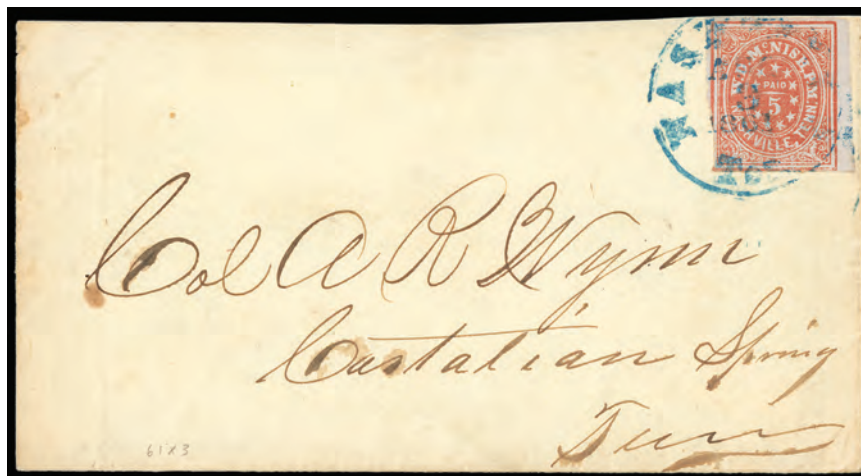 NASHV
A
1861
Ten
W.D. McNISH. P.M.
PAID
5
NASHVILLE, TENN.
Col A R Wynn
Castalian Spring
Tenn
61x3